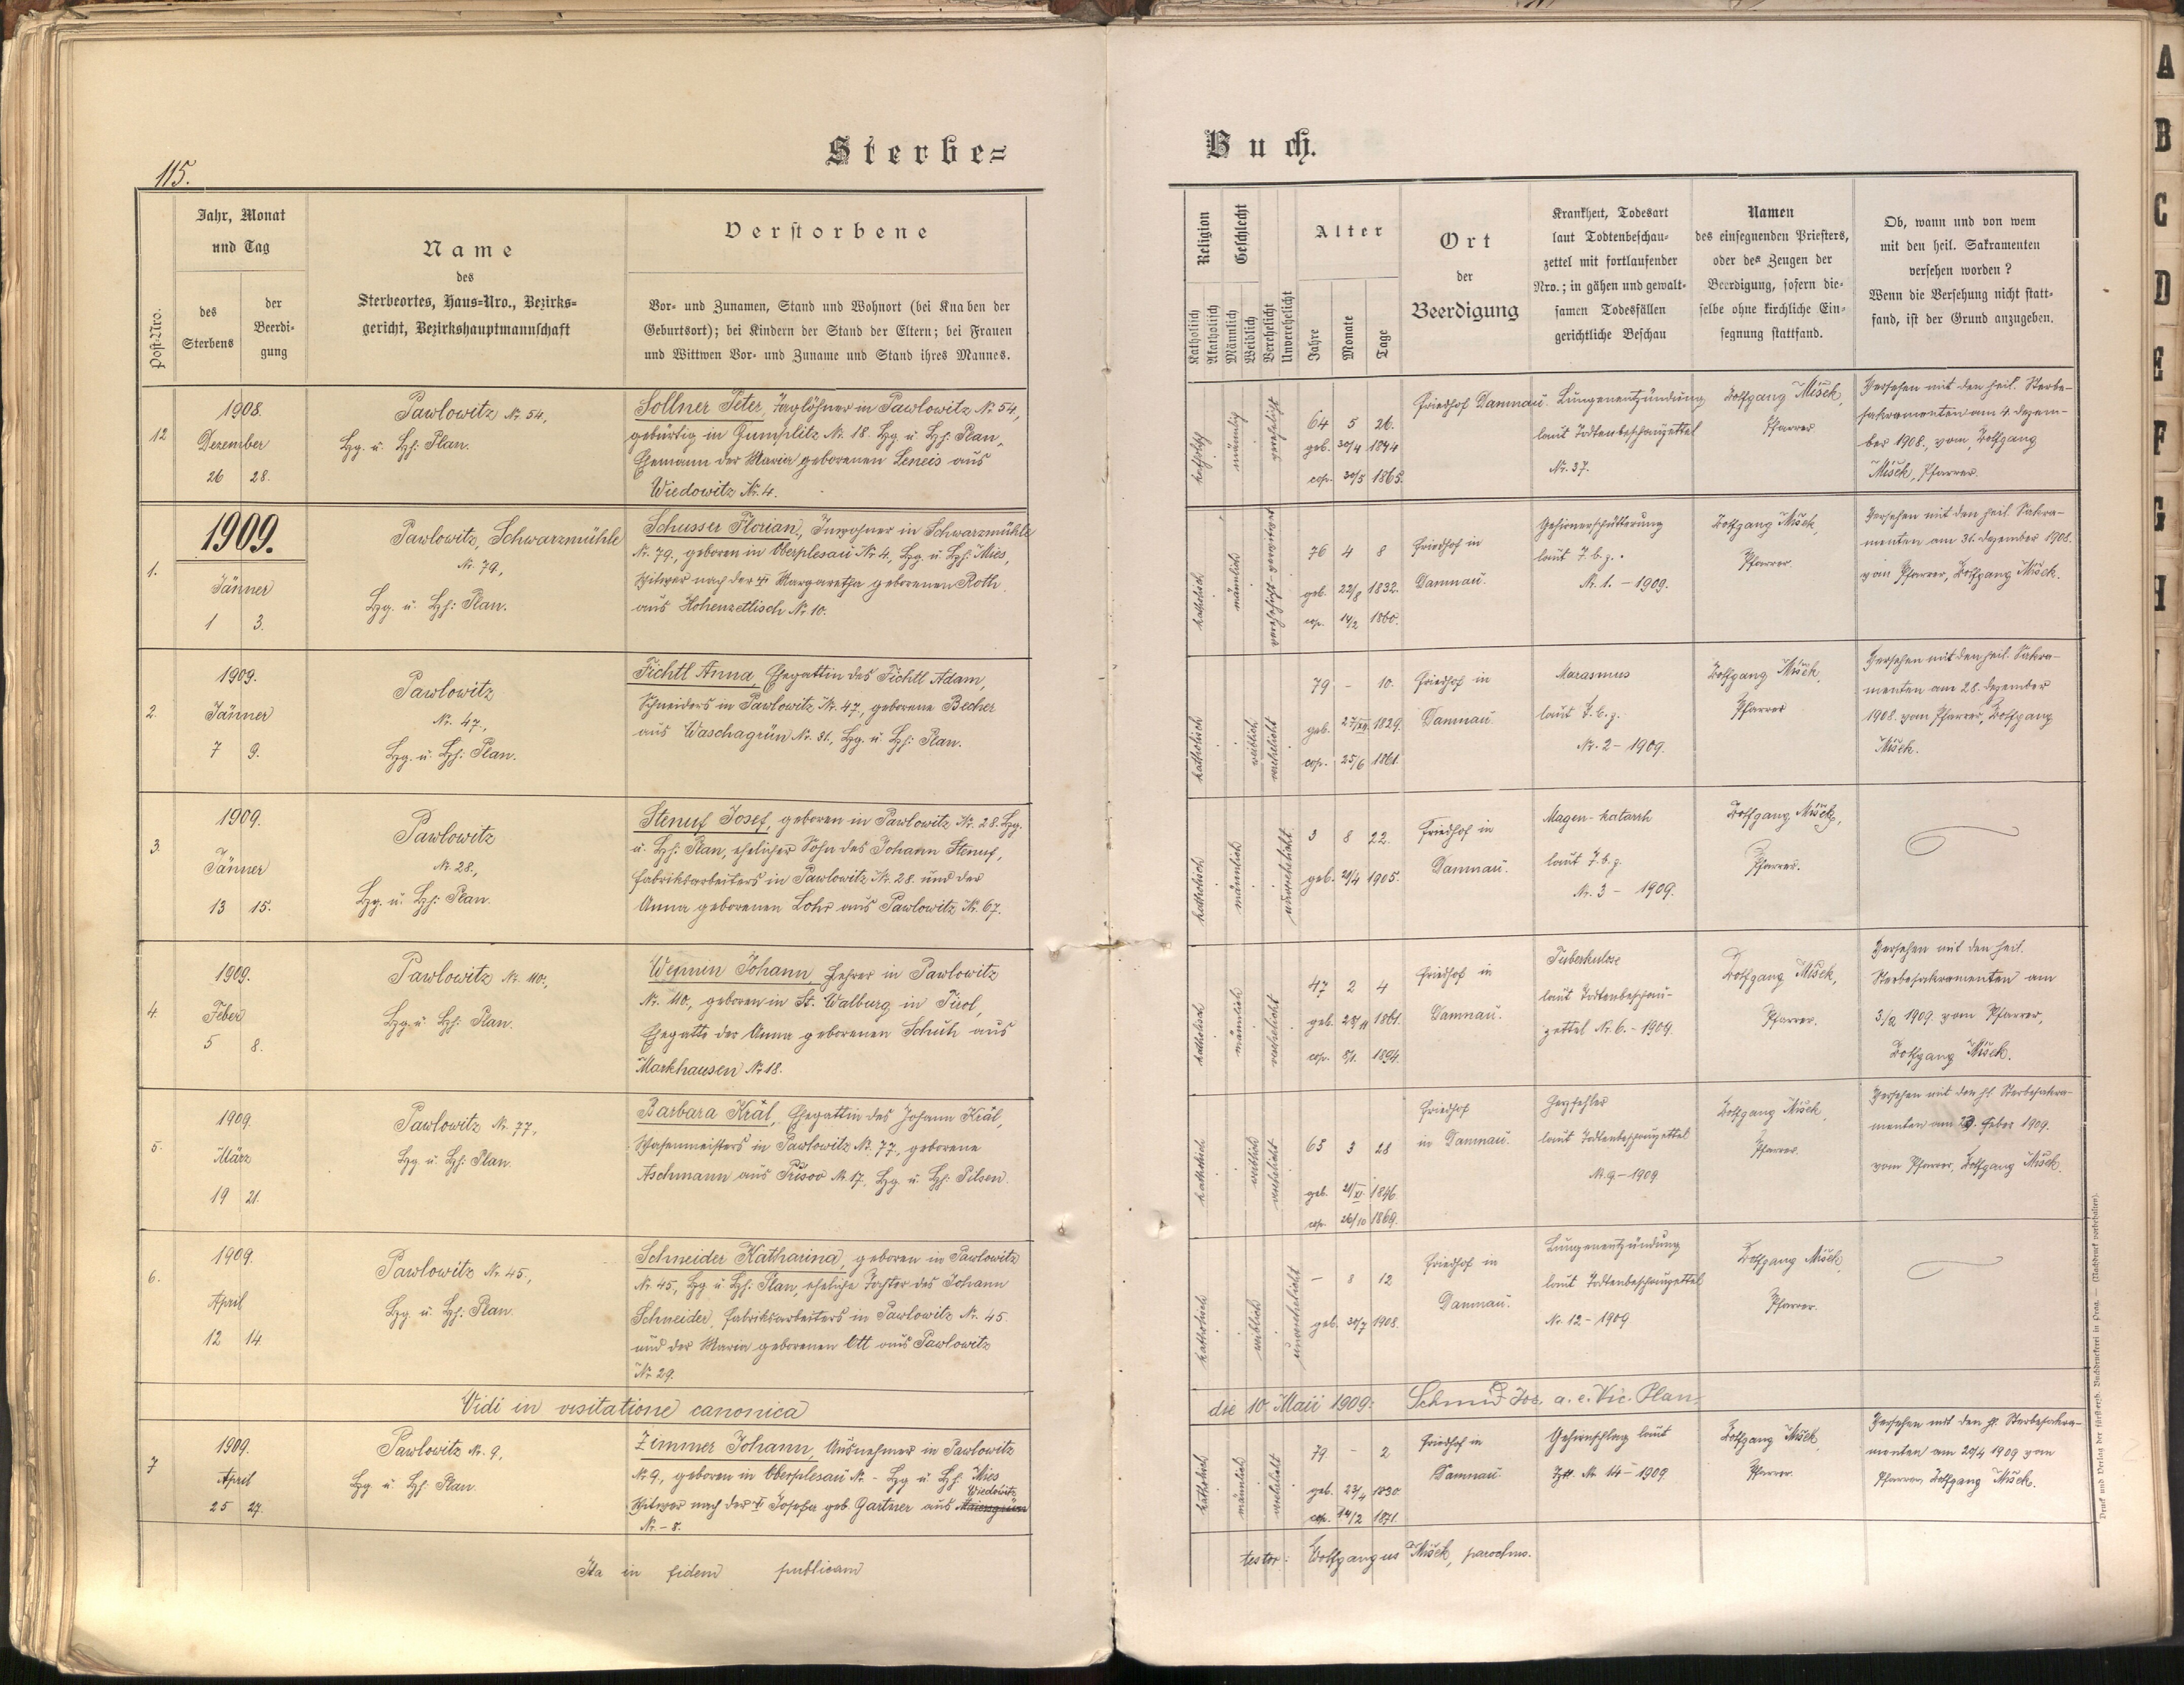 Sterbe=
Buch.
115.
Post-Nro.
Jahr, Monat
und Tag
des
Sterbens
der
Beerdi-
gung
Name
des
Sterbeortes, Haus=Nro., Bezirks=
gericht, Bezirkshauptmannschaft
Verstorbene
Vor- und Zunamen, Stand und Wohnort (bei Knaben der
Geburtsort); bei Kindern der Stand der Eltern; bei Frauen
und Wittwen Vor- und Zuname und Stand ihres Mannes.
Religion
Katholisch
Akatholisch
Geschlecht
Männlich
Weiblich
Verehelicht
Unverehelicht
Alter
Jahre
Monate
Tage
Ort
der
Beerdigung
Krankheit, Todesart
laut Todtenbeschau=
zettel mit fortlaufender
Nro.; in gähen und gewalt=
samen Todesfällen
gerichtliche Beschau
Namen
des einsegnenden Priesters,
oder des Zeugen der
Beerdigung, sofern die=
selbe ohne kirchliche Ein=
segnung stattfand.
Ob, wann und von wem
mit den heil. Sakramenten
versehen worden?
Wenn die Versehung nicht statt=
fand, ist der Grund anzugeben.
12
1908.
Dezember
26 28.
Pawlowitz Nr. 54,
Bg. u. Bh: Plan.
Sollner Peter, Taglöhner in Pawlowitz Nr. 54,
gebürtig in Gumplitz Nr. 18. Bg u Bh: Plan,
Ehemann der Maria geborenen Leneis aus
Wiedowitz Nr. 4.
katholisch
männlich
verehelicht
64 5 26.
geb. 30/4 1844
cop. 30/5 1865.
Friedhof Damnau.
Lungenentzündung
laut Todtenbeschauzettel
Nr. 37.
Wolfgang Mišek,
Pfarrer
Versehen mit den heil. Sterbe-
sakramenten am 4. Dezem-
ber 1908, vom Wolfgang
Mišek, Pfarrer.
1909.
1.
Jänner
1 3.
Pawlowitz, Schwarzmühle
Nr. 79,
Bg. u. Bh: Plan.
Schusser Florian, Inwohner in Schwarzmühle
Nr. 79, geboren in Oberplesau Nr. 4, Bg. u. Bh: Mies,
Witwer nach der Margaretha geborenen Roth
aus Hohenzetlisch Nr 10.
katholisch
männlich
76 4 8
geb. 22/8 1832.
cop. 14/2 1860.
Friedhof in
Damnau.
Gehirnerschütterung
laut T. b. z.
Nr. 1. - 1909.
Wolfgang Mišek,
Pfarrer.
Versehen mit den heil. Sakra-
menten am 31. Dezember 1908.
vom Pfarrer, Wolfgang Mišek.
2.
1909.
Jänner
7 9.
Pawlowitz
Nr. 47,
Bg. u. Bh: Plan.
Fichtl Anna, Ehegattin des Fichtl Adam,
Schneiders in Pawlowitz Nr. 47, geborene Becher
aus Waschagrün Nr. 31, Bg. u Bh: Plan.
katholisch
weiblich
verehelicht
79 - 10.
geb. 27/XII 1829.
cop. 25/6 1861.
Friedhof in
Damnau.
Marasmus
laut T. b. z.
Nr. 2 - 1909.
Wolfgang Mišek,
Pfarrer
Versehen mit den heil. Sakra-
menten am 28. Dezember
1908. vom Pfarrer, Wolfgang
Mišek.
3.
1909.
Jänner
13 15.
Pawlowitz
Nr. 28,
Bg. u. Bh: Plan.
Stenuf Josef, geboren in Pawlowitz Nr. 28. Bg.
u. Bh: Plan, ehelicher Sohn des Johann Stenuf,
Fabriksarbeiters in Pawlowitz Nr. 28. und der
Anna geborenen Lohr aus Pawlowitz Nr. 67.
katholisch
männlich
unverehelicht
3 8 22.
geb. 21/4 1905.
Friedhof in
Damnau.
Magen-katarrh
laut T. b. z.
Nr. 3 - 1909.
Wolfgang Mišek,
Pfarrer.
4.
1909.
Feber
5 8.
Pawlowitz Nr. 110,
Bg. u. Bh: Plan.
Johann, Lehrer in Pawlowitz
Nr. 110., geboren in St. Walburg in Tirol,
Ehegatte der Anna geborenen Schuh aus
Markhausen Nr 18.
katholisch
männlich
verehelicht
47 2 4
geb. 1861.
cop. 8/1. 1894.
Friedhof in
Damnau.
Tuberkulose
laut Todtenbeschau-
zettel Nr. 6. - 1909.
Wolfgang Mišek,
Pfarrer.
Versehen mit den heil.
Sterbesakramenten am
3./2 1909. vom Pfarrer,
Wolfgang Mišek.
5.
1909.
März
19 21.
Pawlowitz Nr. 77,
Bg u. Bh: Plan.
Barbara Král, Ehegattin des Johann Král,
Wasenmeisters in Pawlowitz Nr. 77., geborene
Aschmann aus Přisov Nr 17, Bg u Bh: Pilsen.
katholisch
weiblich
verehelicht
63 3 28
geb. 21/XI 1846.
cop. 26/10 1869.
Friedhof
in Damnau.
Herzfehler
laut Todtenbeschauzettel
Nr. 9. - 1909
Wolfgang Mišek,
Pfarrer.
Versehen mit den hl. Sterbesakra-
menten am 23. Feber 1909.
vom Pfarrer, Wolfgang Mišek.
6.
1909.
April
12 14.
Pawlowitz Nr. 45,
Bg. u. Bh: Plan.
Schneider Katharina, geboren in Pawlowitz
Nr. 45, Bg u. Bh: Plan, eheliche Tochter des Johann
Schneider, Fabriksarbeiters in Pawlowitz Nr. 45.
und der Maria geborenen Ott aus Pawlowitz
Nr 29.
katholisch
weiblich
unverehelicht
- 8 12
geb. 30/7 1908.
Friedhof in
Damnau.
Lungenentzündung
laut Todtenbeschauzettel
Nr. 12 - 1909
Wolfgang Mišek,
Pfarrer.
Vidi in visitatione canonica
die 10. Maii 1909.
Schmid Jos. a. e. Vic. Plan.
7
1909.
April
25 27.
Pawlowitz Nr. 9,
Bg. u. Bh: Plan.
Zimmer Johann, Ausnehmer in Pawlowitz
Nr 9., geboren in Oberplesau Nr. - Bg u Bh: Mies
Wiedowitz
Witwer nach der Josefa geb. Gartner aus
Nr. - 8.
katholisch
männlich
verehelicht
79 - 2
geb. 23/4 1830.
cop. 14/2 1871.
Friedhof in
Damnau.
Gehirnschlag laut
Nr. 14 - 1909.
Wolfgang Mišek,
Pfarrer.
Versehen mit den hl. Sterbesakra-
menten am 20/4 1909 vom
Pfarrer Wolfgang Mišek.
Ita in fidem publicam
testor: Wolfgangus Mišek, parochus.
Druck und Verlag der fürsterzb. Buchdruckerei in Prag. — (Nachdruck vorbehalten).
A
B
C
D
E
F
G
H